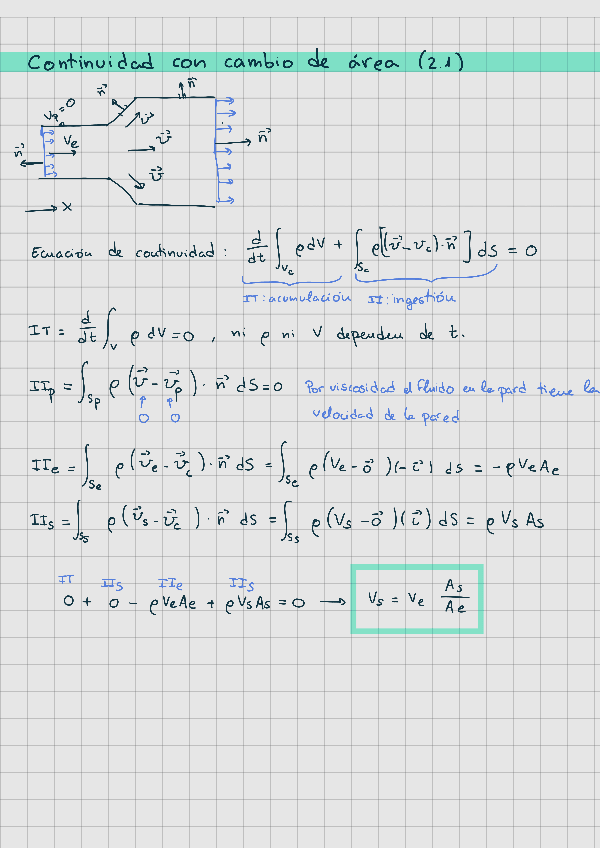 Continuidad con cambio de área (2.1)
n⃗
n⃗
Vp=0
v⃗
n⃗ Ve v⃗ n⃗
v⃗
x
Ecuación de continuidad : d/dt ∫_Vc ρdV + ∫_Sc ρ[(v⃗-vc)·n⃗] dS = 0
IT: acumulación II: ingestión
IT = d/dt ∫_V ρ dV = 0 , ni ρ ni V dependen de t.
IIp = ∫_Sp ρ (v⃗ - v⃗p) · n⃗ dS = 0 Por viscosidad el fluido en la pard tiene la
0 0 velocidad de la pared
IIe = ∫_Se ρ (v⃗e - v⃗c) · n⃗ dS = ∫_Se ρ(Ve - o⃗)(-i⃗) ds = -ρVeAe
IIs = ∫_Ss ρ (v⃗s - v⃗c) · n⃗ dS = ∫_Ss ρ(Vs - o⃗)(i⃗) dS = ρ Vs As
IT IIs IIe IIs
0 + 0 - ρVeAe + ρVsAs = 0 → Vs = Ve As/Ae